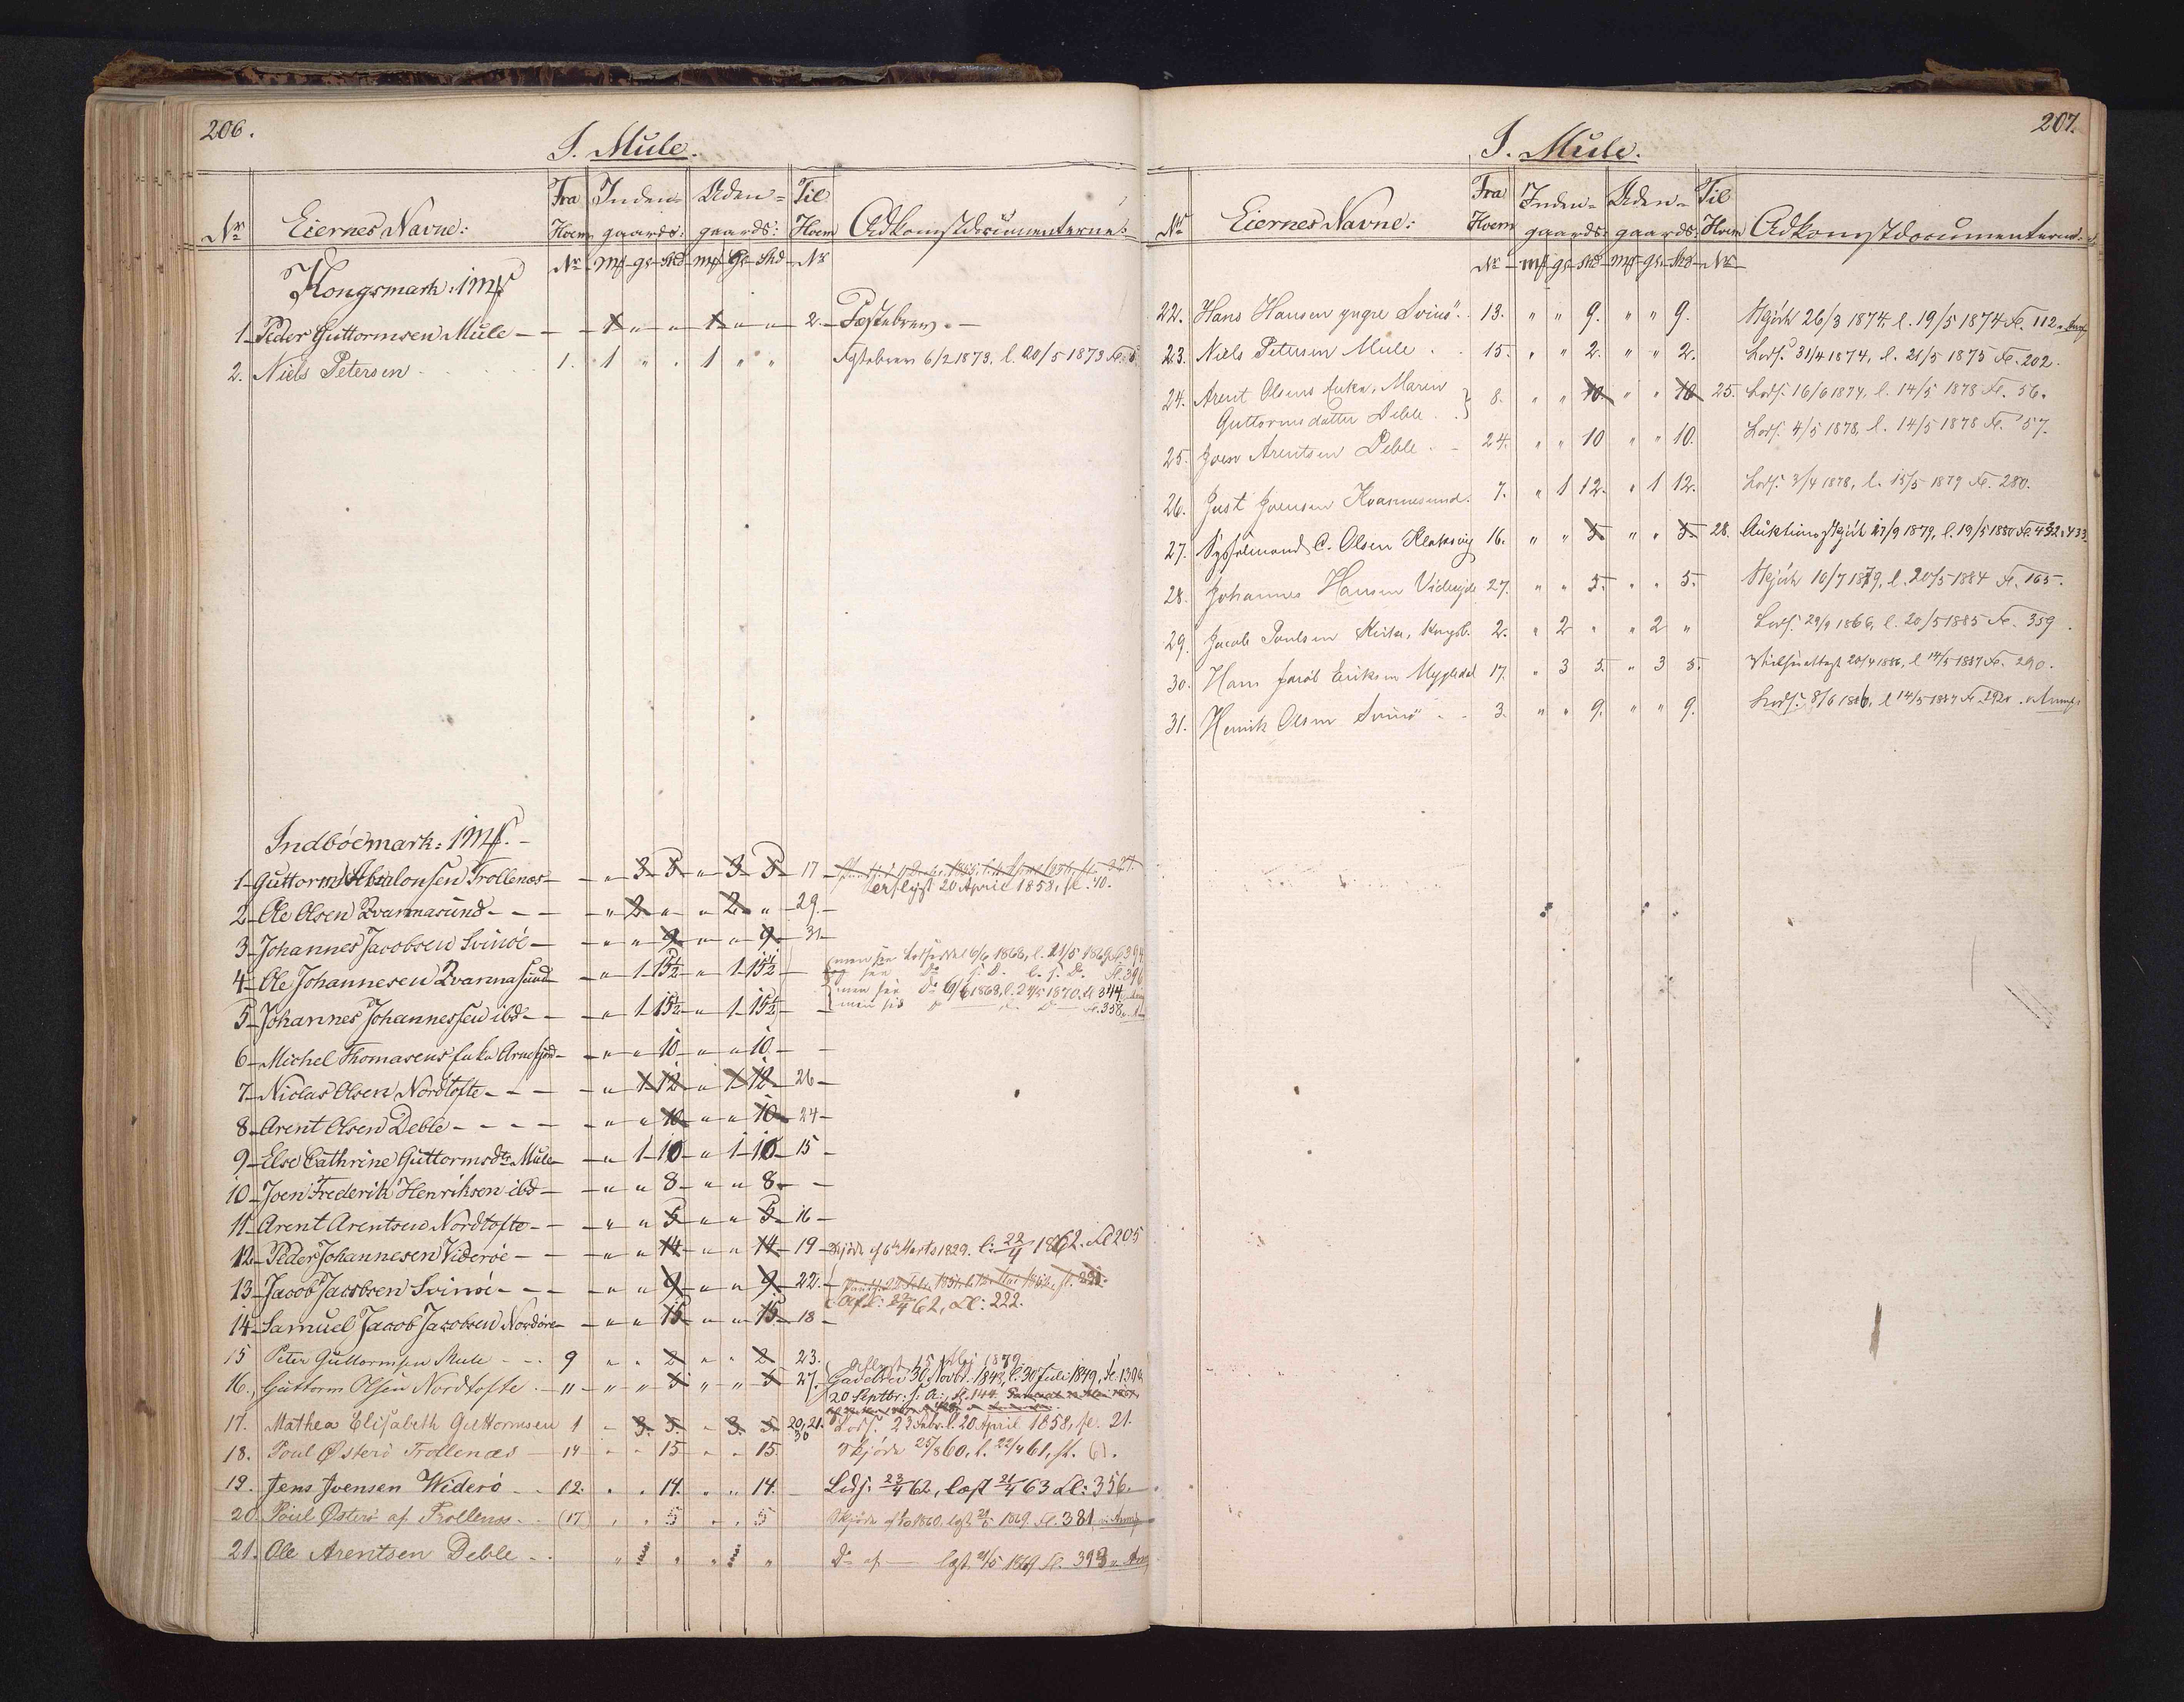 206.
I. Mule.
Nr Eiernes Navne: Fra Hvem Inden-gaards: Uden-gaards: Til Hvem Adkomstdocumenterne:
Nr Mk gr Skd Mk Gr Skd Nr
Kongsmark: 1 Mk
1 Peder Guttormsen Mule - 1 " " 1 " " 2. Fæstebrev. -
2. Niels Petersen 1. 1 " . 1 " " Fæstebrev 6/2 1873. l. 20/5 1873
Indböemark: 1 Mk. -
1 Guttorm Absalonsen Trollenæs " 3 5 " 3 5 17
aflyst 20 April 1858, fl. 10.
2 Ole Olsen Qvannasund - - - " 2 " " 2 " 29
3 Johannes Jacobsen Svinöe " " 9 " " 9 31
4 Ole Johannesen Qvannasund " 1 15½ " 1 15½ 6/6 1868, l. 21/5 1869 Fl. 394
5 Johannes Johannessen ibd - " 1 15½ " 1 15½ 6/6 1868, l. 2 1870. fl 344
Fl. 358
6 Michel Thomasens Enke Arnefjord " " 10 " " 10
7 Niclas Olsen Nordtofte - - - " 1 12 " 1 12 26
8 Arent Olsen Deble - - - - " " 10 " " 10 24
9 Else Cathrine Guttormsdtr Mule " 1 10 " 1 10 15
10 Joen Frederik Henriksen ibd " " 8 " " 8
11 Arent Arentsen Nordtofte - - " " 5 " " 5 16
12 Peder Johannesen Videröe - - " " 14 " " 14 19 Skjöde af 6te Marts 1829. l: 22/4 1862. Fl 205
13 Jacob Jacobsen Svinöe - - - " " 9 " " 9 22.
Afl: 22/4 62, Fl: 222.
14 Samuel Jacob Jacobsen Nordöre " " 15 " " 15 18
15 Peter Guttormsen Mule - - . 9 " " 2 " " 2 23.
aflyst 15 Maj 1879
16. Guttorm Olsen Nordtofte " " " 5 " " 5 27. Gavebrev 30 Novbr. 1848, l. 30 Juli 1849, Fl. 139
20 Septbr: s. A:, fl. 144.
17. Mathea Elisabeth Guttormsen 1 - 3. 5. - 3. 5 20, 21. 30 Lods. 23 Febr. l. 20 April 1858, fl. 21.
18. Poul Østerö Trollenæs 14 " " 15 " " 15 Skjöde 25/8 60, l. 22/4 61, fl. 61.
19. Jens Joensen Widerö - . 12. . . 14. . . 14. - Lods: 23/4 62, læst 21/4 63 Fl: 356.
20. Poul Østerö af Trollenæs - . (17) " . 5 " . 5 Skjöde 1860, lgst. 21/5 1869. Fl. 381
21. Ole Arentsen Deble - . Do af lgst. 21/5 1869 Fl. 393
207.
I. Mule.
Nr Eiernes Navne: Fra Hvem Inden-gaards: Uden-gaards: Til Hvem Adkomstdocumenterne.
Nr Mk gr Skd Mk gr Skd Nr
22. Hans Hansen yngre Svinö . 13. " " 9. " " 9. Skjöde 26/3 1874, l. 19/5 1874 Fl. 112.
23. Niels Petersen Mule . . 15. " " 2. " " 2. Lods. 31/4 1874, l. 21/5 1875 Fl. 202.
24. Arent Olsens Enke, Maren
Guttormsdatter Deble . . } 8. " " 10 " " 10 25. Lods. 16/6 1874, l. 14/5 1878 Fl. 56.
25. Joen Arentsen Deble . - 24. " " 10 " " 10. Lods. 4/5 1878, l. 14/5 1878 Fl. 57.
26. Just Joensen Kvannesund. 7. " 1 12. " 1 12. Lods. 3/4 1878, l. 15/5 1879 Fl. 280.
27. Sysselmand C. Olsen Klaksvig 16. " " 5 " " 5 28. Auktionsskjöde 27/9 1879, l. 19/5 1880 Fl. 432 433
28. Johannes Hansen Videreide 27. " " 5. . " 5. Skjöde 16/7 1879, l. 20/5 1884 Fl. 165.
29. Jacob Poulsen 2. " 2 " " 2 " Lods. 29/9 1866, l. 20/5 1885 Fl. 359.
30. Hans Jacob Eriksen Mygledal 17. " 3 5. " 3 5. 20/4 1886, l 14/5 1887 Fl. 290.
31. Henrik Olsen Svinö . . 3. " " 9. " " 9. Lods. 8/6 1886, l 14/5 1887 Fl. 292